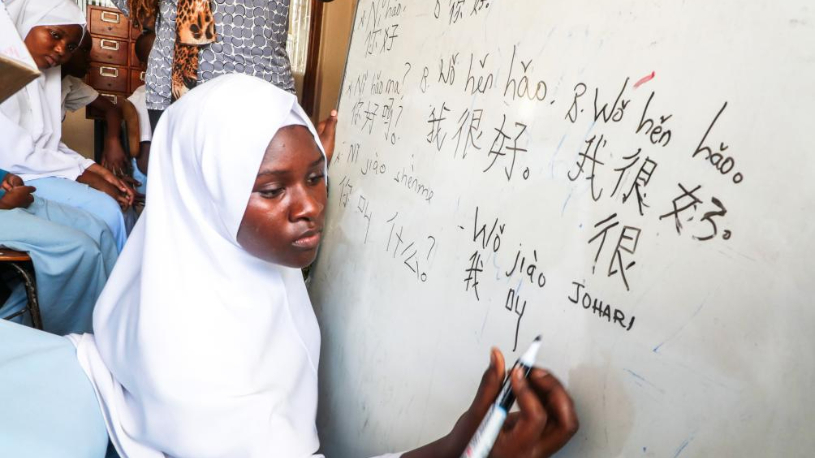 Nǐ hǎo.
你好
你好.
Nǐ hǎo ma?
你好吗?
Nǐ jiào shénme
你叫什么?
8. Wǒ hěn hǎo.
我很好。
8. Wǒ hěn hǎo.
我很好。
很
- Wǒ jiào JOHARI
我叫